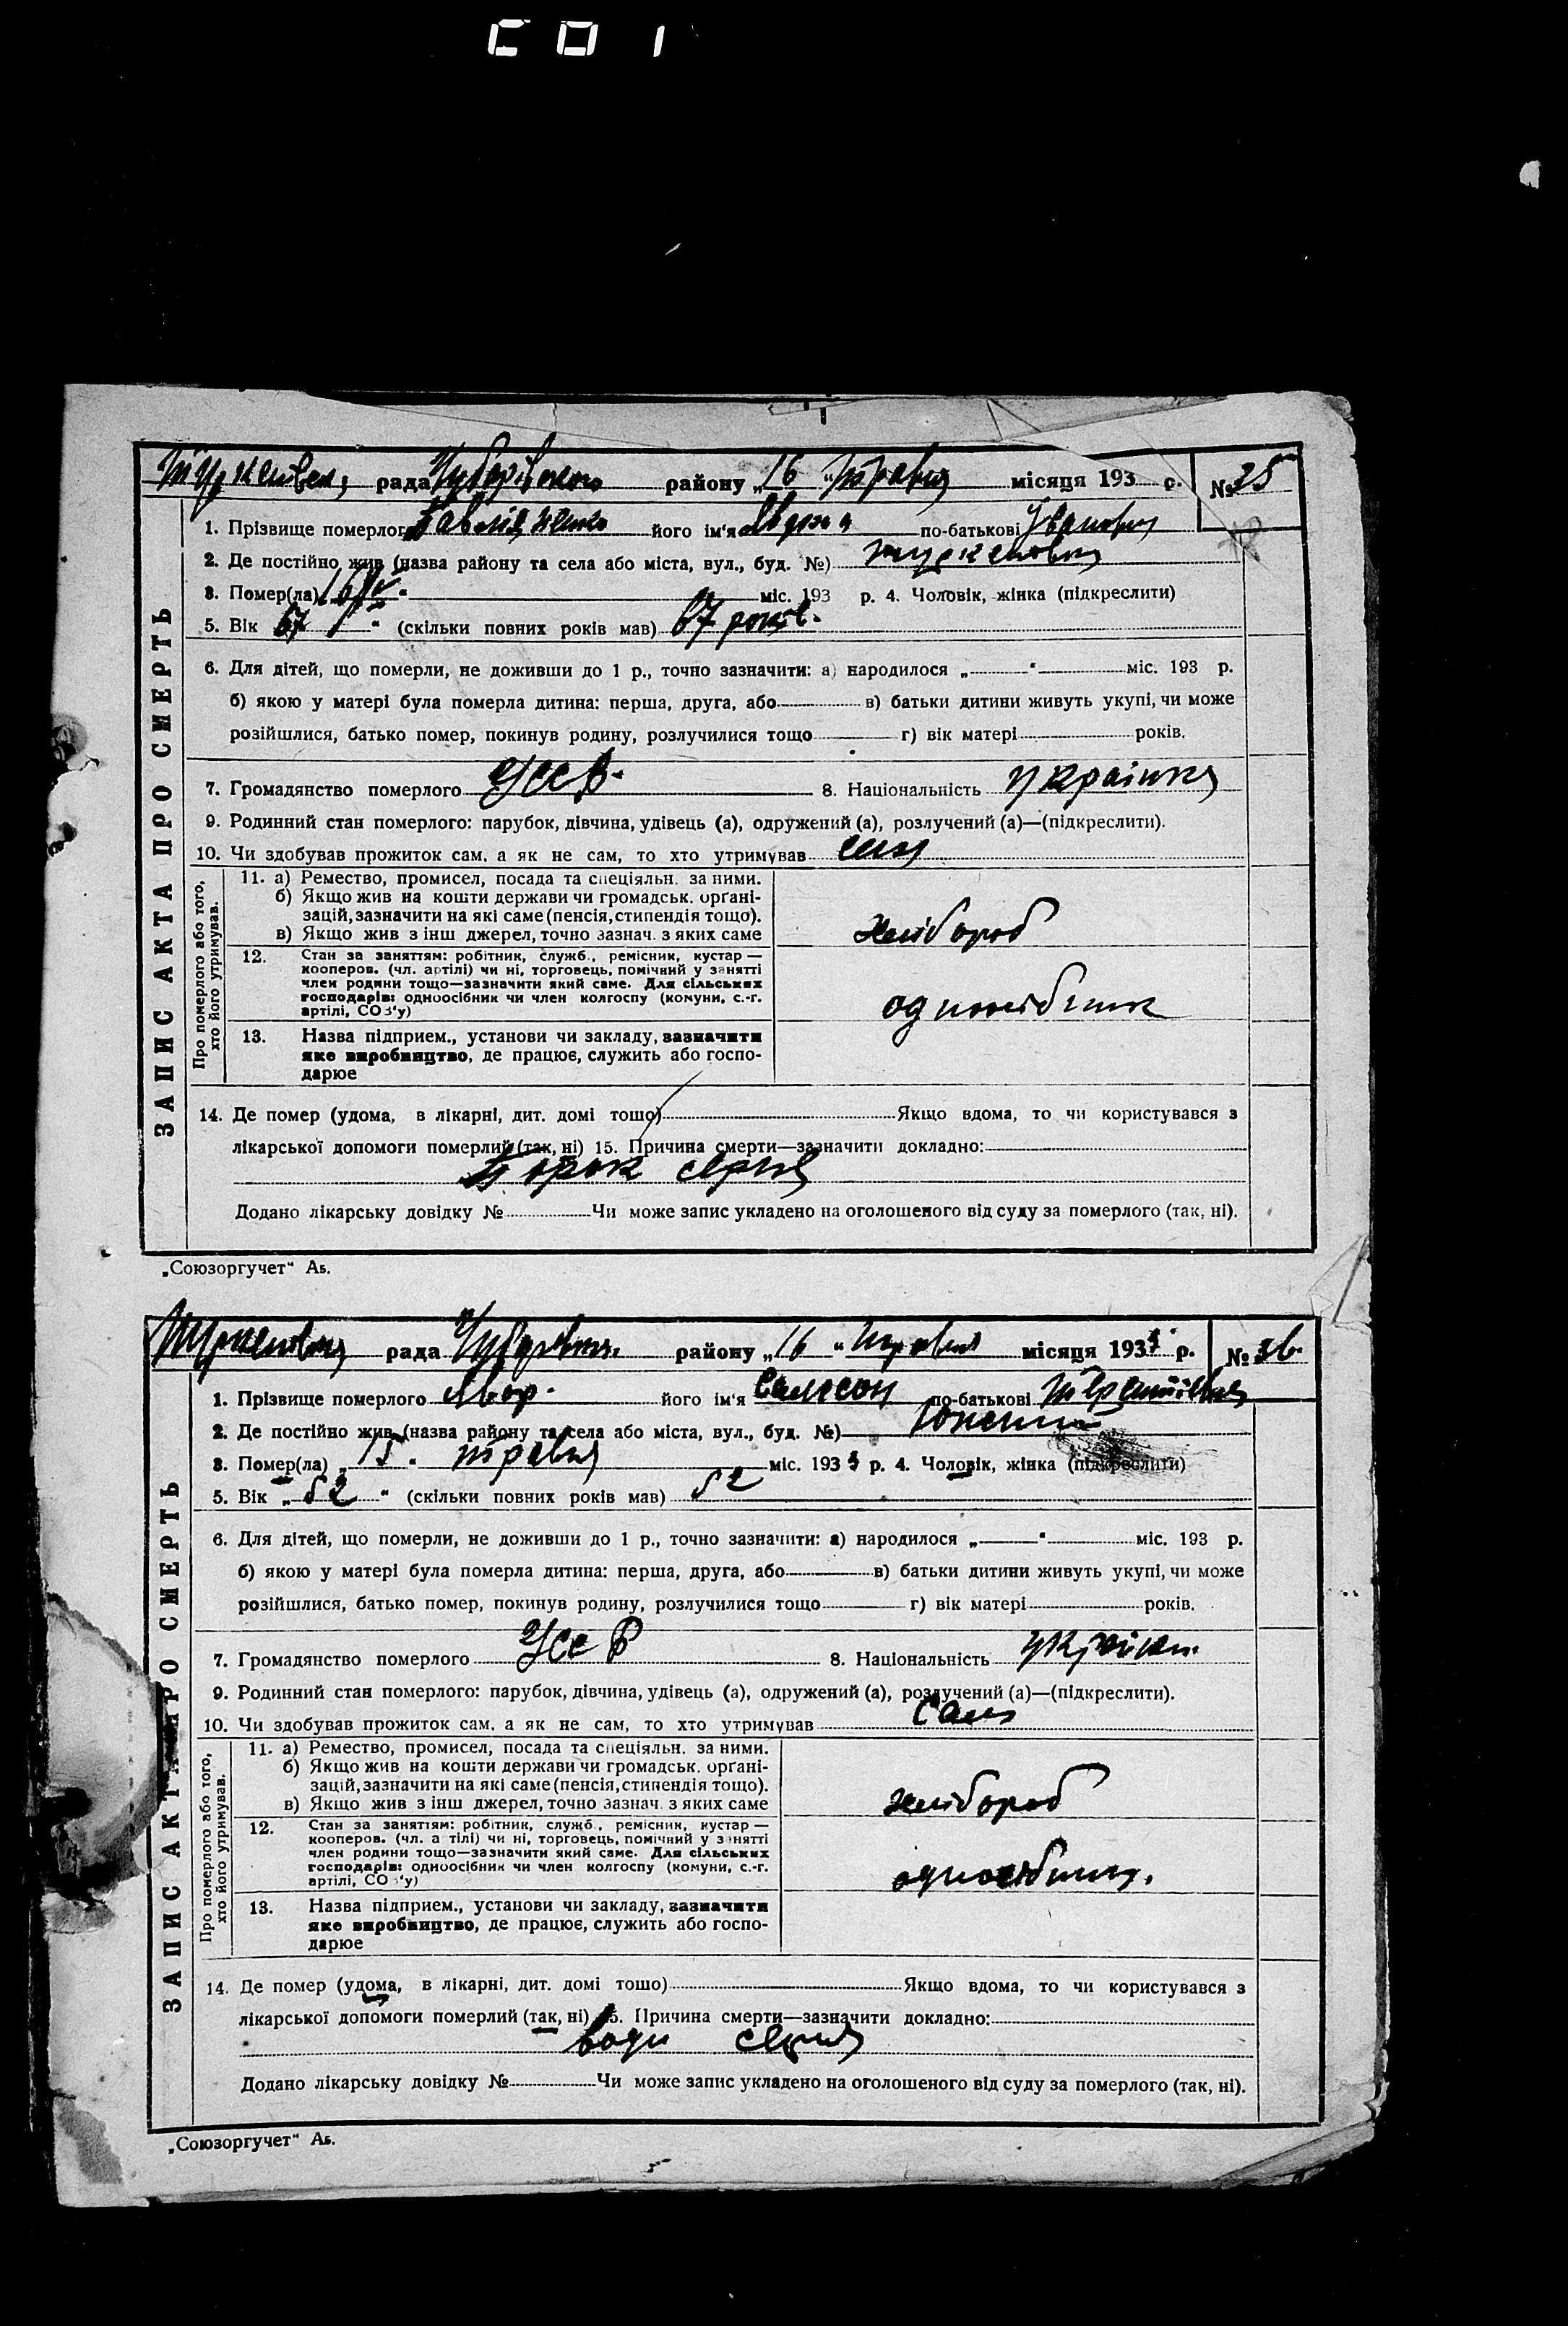 рада району „16“ травня місяця 193 р. № 35
1. Прізвище померлого його ім'я по-батькові
2. Де постійно жив (назва району та села або міста, вул., буд. №)
3. Помер(ла) „16 “ міс. 193 р. 4. Чоловік, жінка (підкреслити)
5. Вік „67“ (скільки повних років мав) 67 років.
6. Для дітей, що померли, не доживши до 1 р., точно зазначити: а) народилося „ “ міс. 193 р.
б) якою у матері була померла дитина: перша, друга, або в) батьки дитини живуть укупі, чи може
розійшлися, батько помер, покинув родину, розлучилися тощо г) вік матері років.
7. Громадянство померлого УССР. 8. Національність українка
9. Родинний стан померлого: парубок, дівчина, удівець (а), одружений (а), розлучений (а)—(підкреслити).
10. Чи здобував прожиток сам, а як не сам, то хто утримував
ЗАПИС АКТА ПРО СМЕРТЬ
Про померлого або того,
хто його утримував.
11. а) Ремество, промисел, посада та спеціяльн. за ними.
б) Якщо жив на кошти держави чи громадськ. орґані-
зацій, зазначити на які саме (пенсія, стипендія тощо).
в) Якщо жив з інш джерел, точно зазнач. з яких саме
хлібороб
12. Стан за заняттям: робітник, служб., ремісник, кустар —
кооперов. (чл. артілі) чи ні, торговець, помічний у занятті
член родини тощо—зазначити який саме. Для сільських
господарів: одноосібник чи член колгоспу (комуни, с.-г.
артілі, СОЗ'у)
одноосібник
13. Назва підприєм., установи чи закладу, зазначити
яке виробництво, де працює, служить або госпо-
дарює
14. Де помер (удома, в лікарні, дит. домі тошо) Якщо вдома, то чи користувався з
лікарської допомоги померлий (так, ні) 15. Причина смерти—зазначити докладно:
Порок серця
Додано лікарську довідку № Чи може запис укладено на оголошеного від суду за померлого (так, ні).
„Союзоргучет“ Аб.
рада району „16“ травня місяця 1933 р. № 36.
1. Прізвище померлого його ім'я Самсон по-батькові
2. Де постійно жив (назва району та села або міста, вул., буд. №)
3. Помер(ла) „15“ травня міс. 1933 р. 4. Чоловік, жінка (підкреслити)
5. Вік „52“ (скільки повних років мав) 52
6. Для дітей, що померли, не доживши до 1 р., точно зазначити: а) народилося „ “ міс. 193 р.
б) якою у матері була померла дитина: перша, друга, або в) батьки дитини живуть укупі, чи може
розійшлися, батько помер, покинув родину, розлучилися тощо г) вік матері років.
7. Громадянство померлого УССР 8. Національність
9. Родинний стан померлого: парубок, дівчина, удівець (а), одружений (а), розлучений (а)—(підкреслити).
10. Чи здобував прожиток сам, а як не сам, то хто утримував сам
ЗАПИС АКТА ПРО СМЕРТЬ
Про померлого або того,
хто його утримував.
11. а) Ремество, промисел, посада та спеціяльн. за ними.
б) Якщо жив на кошти держави чи громадськ. орґані-
зацій, зазначити на які саме (пенсія, стипендія тощо).
в) Якщо жив з інш джерел, точно зазнач. з яких саме
хлібороб
12. Стан за заняттям: робітник, служб., ремісник, кустар —
кооперов. (чл. а тілі) чи ні, торговець, помічний у занятті
член родини тощо—зазначити який саме. Для сільських
господарів: одноосібник чи член колгоспу (комуни, с.-г.
артілі, СОЗ'у)
одноосібник.
13. Назва підприєм., установи чи закладу, зазначити
яке виробництво, де працює, служить або госпо-
дарює
14. Де помер (удома, в лікарні, дит. домі тошо) Якщо вдома, то чи користувався з
лікарської допомоги померлий (так, ні) 15. Причина смерти—зазначити докладно:
серця
Додано лікарську довідку № Чи може запис укладено на оголошеного від суду за померлого (так, ні).
„Союзоргучет“ Аб.